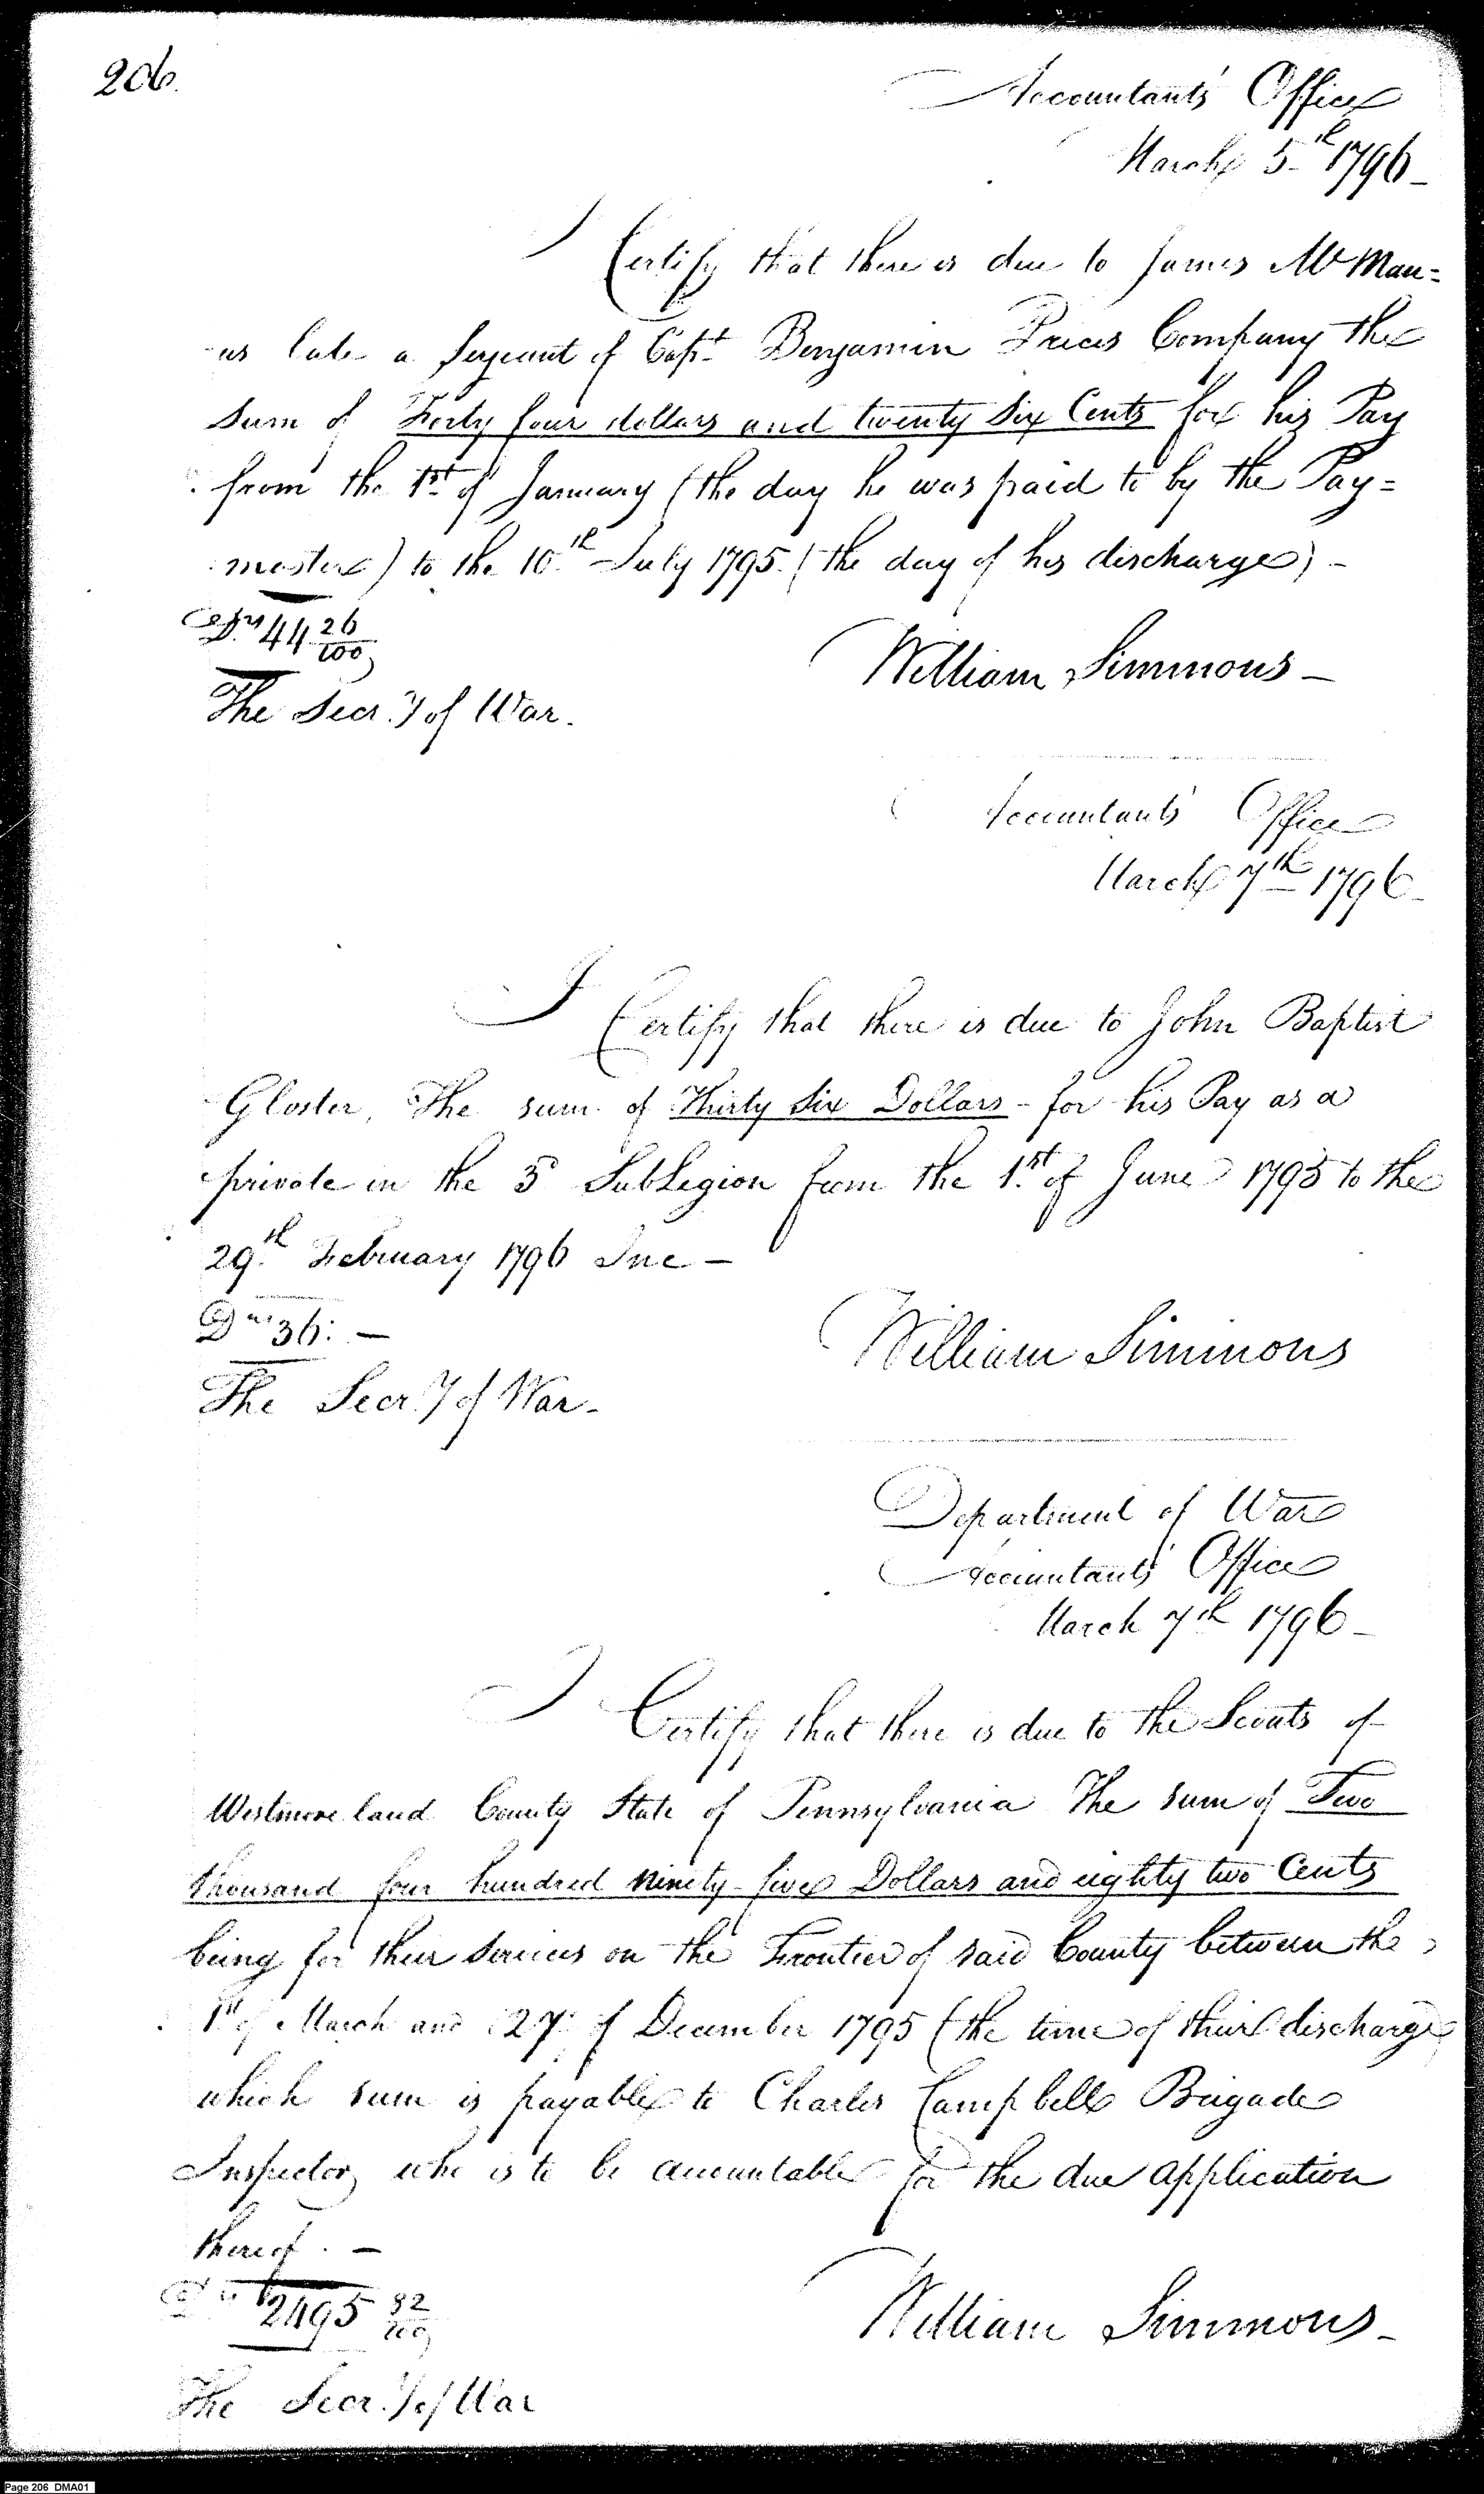 206.
Accountants' Office
March 5th 1796 -
I Certify that there is due to James McMan=
us late a Serjeant of Capt. Benjamin Prices Company the
sum of Forty four dollars and twenty six Cents for his Pay
from the 1st of January (the day he was paid to by the Pay=
master) to the 10th July 1795 (the day of his discharge) -
Drs 44 26/100
William Simmons -
The Secr.y of War.
Accountants' Office
March 7th 1796 -
I Certify that there is due to John Baptist
Gloster, The sum of Thirty Six Dollars - for his Pay as a
private in the 3d SubLegion from the 1st of June 1795 to the
29th February 1796 Inc -
Drs 36: -
William Simmons
The Secr.y of War -
Department of War
Accountants' Office
March 7th 1796 -
I Certify that there is due to the Scouts of
Westmoreland County State of Pennsylvania The sum of Two
thousand four hundred ninety-five Dollars and eighty two Cents
being for their services on the Frontier of said County between the
1st of March and 27 of December 1795 (the time of their discharge)
which sum is payable to Charles Campbell Brigade
Inspector, who is to be accountable for the due application
thereof. -
2495 82/100
William Simmons -
The Secr.y of War
Page 206 DMA01